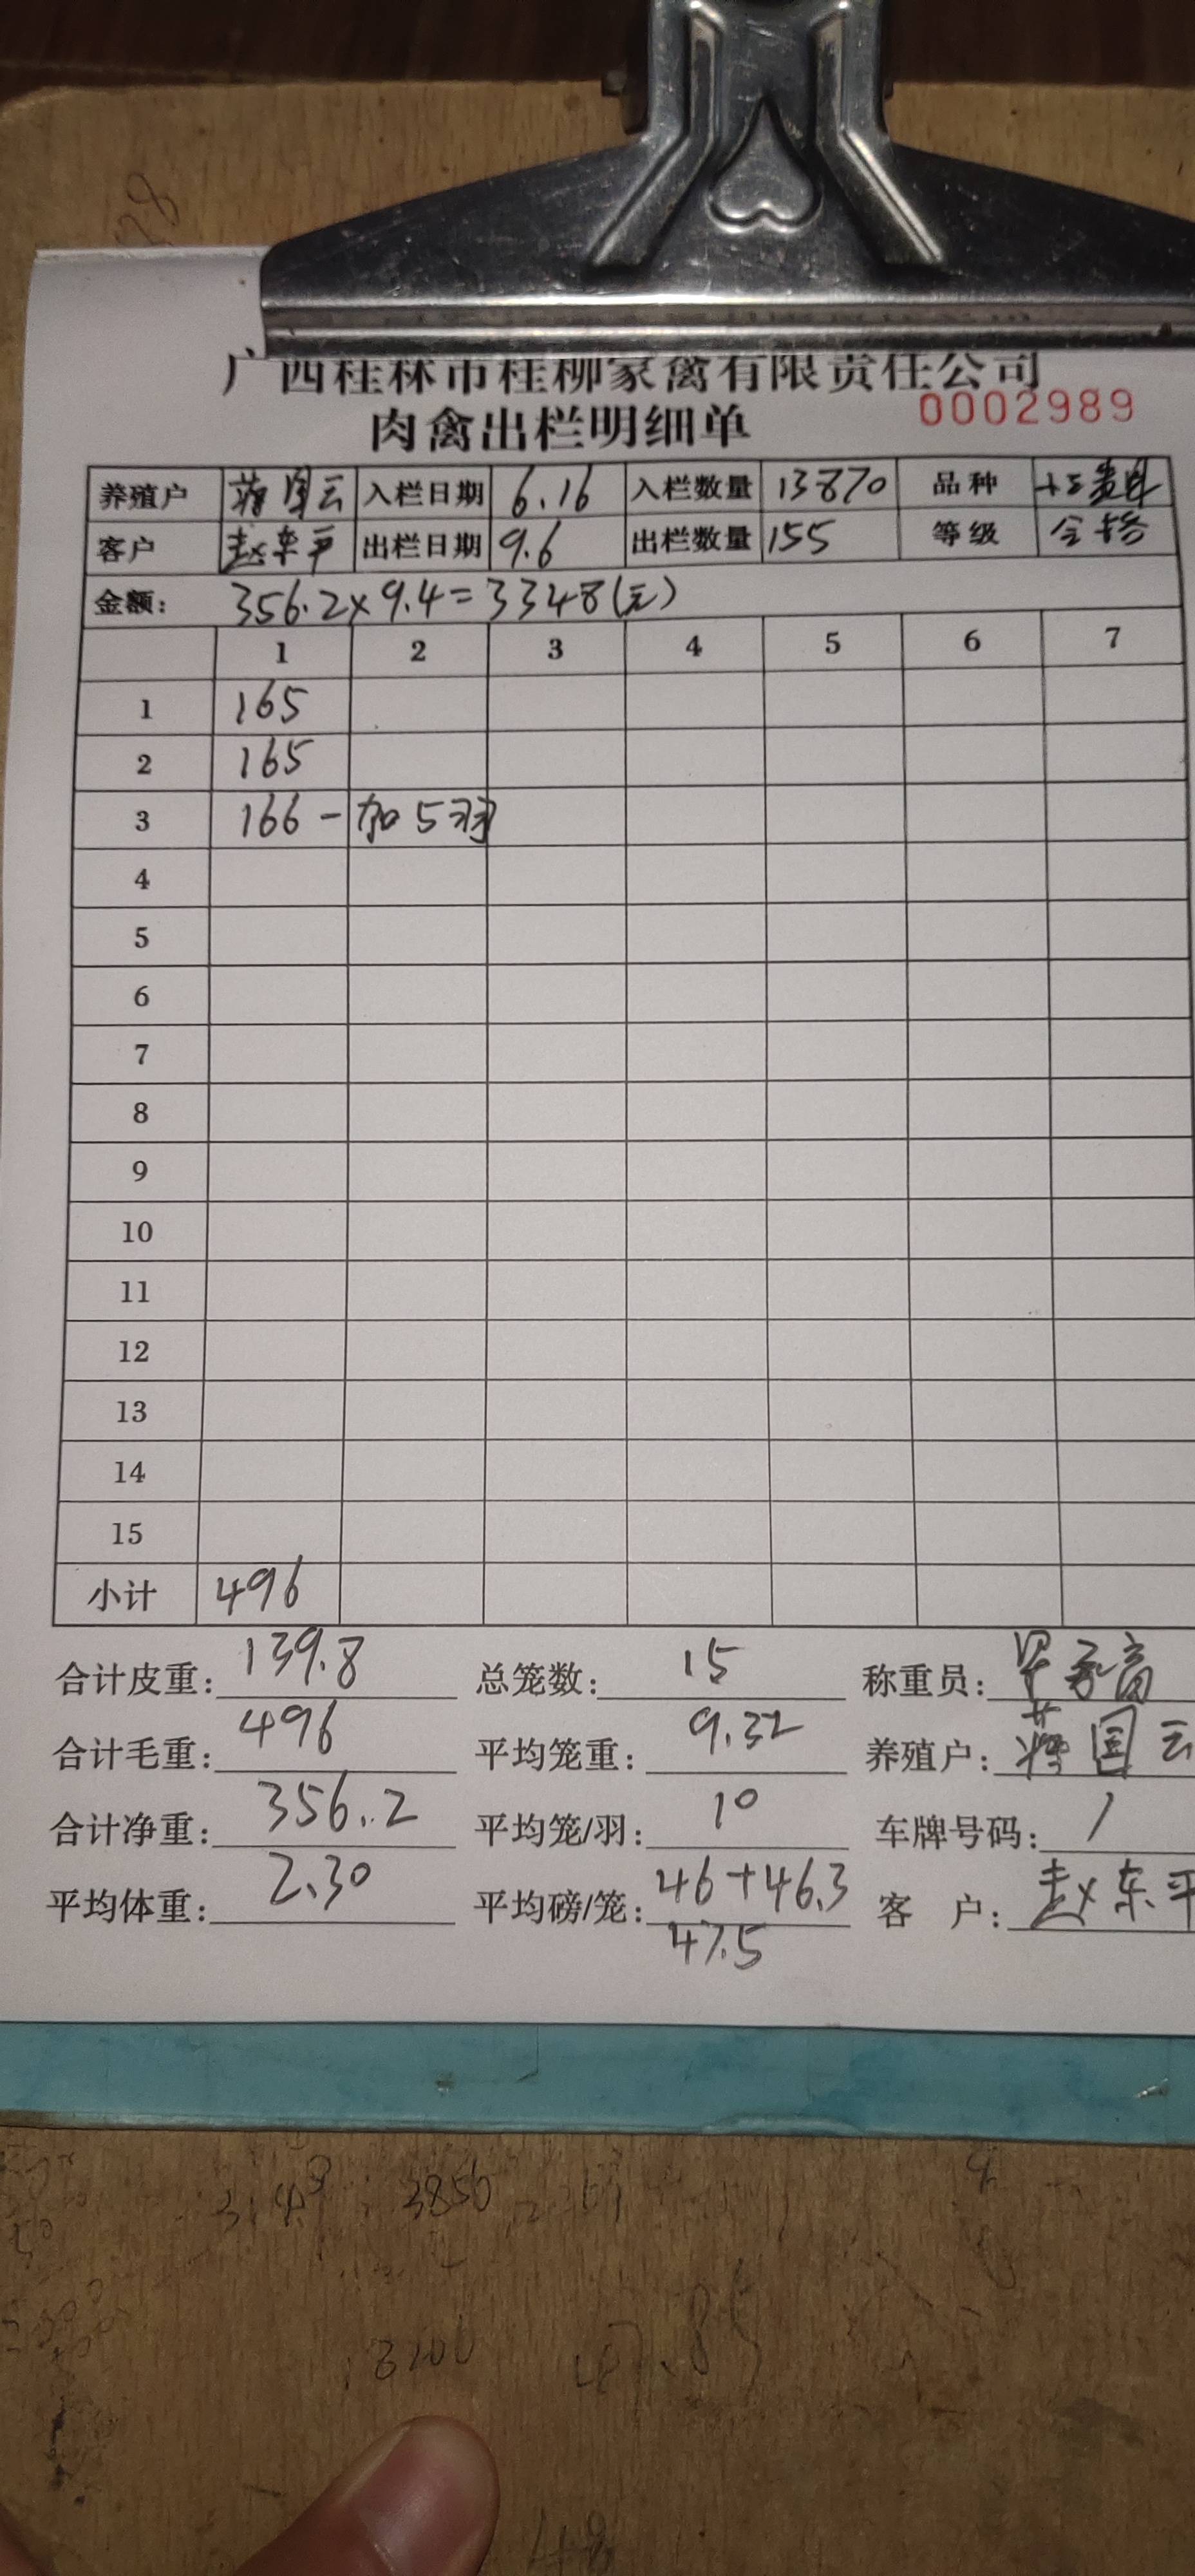 广西桂林市桂柳家禽有限责任公司
肉禽出栏明细单 0002989
养殖户 蒋国云 入栏日期 6.16 入栏数量 13870 品种
客户 赵东平 出栏日期 9.6 出栏数量 155 等级 合格
金额: 356.2×9.4=3348(元)
1 2 3 4 5 6 7
1 165
2 165
3 166-加5羽
4
5
6
7
8
9
10
11
12
13
14
15
小计 496
合计皮重: 139.8 总笼数: 15 称重员:
合计毛重: 496 平均笼重: 9.32 养殖户: 蒋国云
合计净重: 356.2 平均笼/羽: 10 车牌号码: /
平均体重: 2.30 平均磅/笼: 46+46.3 客 户: 赵东平
47.5
3850
48